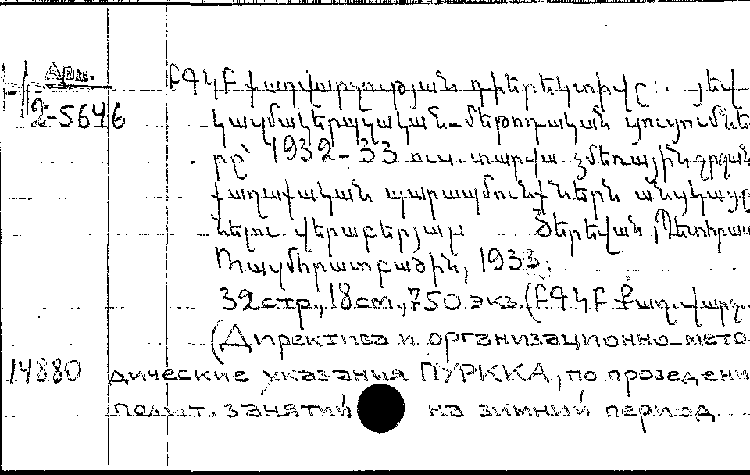 Арм.
2-5646
ԲԳԿԲ քաղվարչության դիրեկտիվը: յեվ
կազմակերպչական-մեթոդական ցուցումնե
րը 1932-33 ուս. տարվա ձմեռային շրջան
քաղաքական պարապմունքներն անցկացը
նելու վերաբերյալ Յերեվան, Պետհրատ
Ռազմհրատբաժին, 1933.
32 стр., 18 ст., 750 экз. (ԲԳԿԲ Քաղ. վարչ.
(Директива и организационно-мето-
14880 дические указания ПУРККА, по проведени
полит. занятий на зимний период